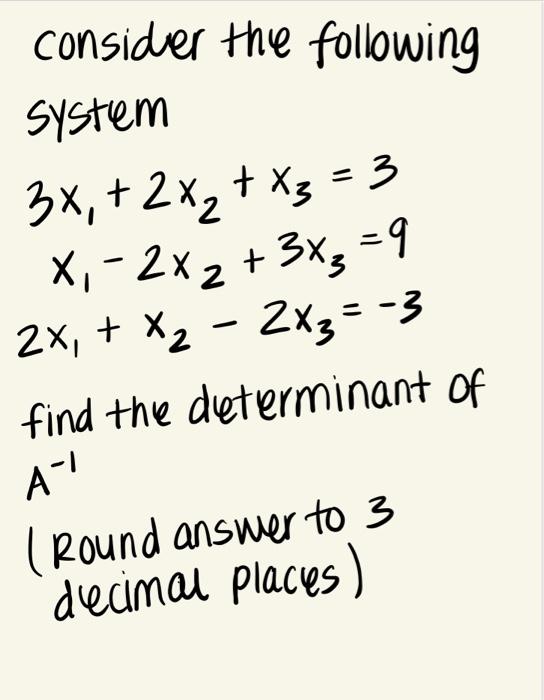 consider the following
system
3x₁ + 2x₂ + x₃ = 3
x₁ - 2x₂ + 3x₃ = 9
2x₁ + x₂ - 2x₃ = -3
find the determinant of
A⁻¹
(Round answer to 3
decimal places)